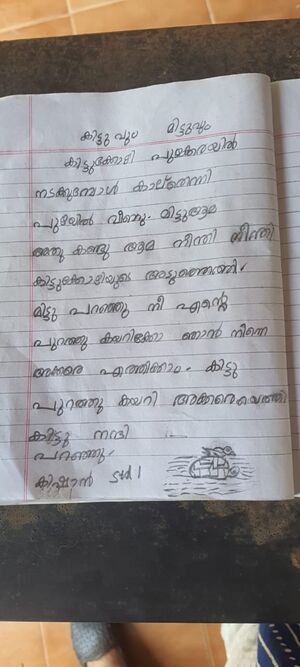 കിട്ടു വും മിട്ടുവും
കിട്ടുക്കോഴി പുഴക്കരയിൽ
നടക്കുമ്പോൾ കാല്തെന്നി
പുഴയിൽ വീണു. മിട്ടുആമ
അതു കണ്ടു ആമ നീന്തി നീന്തി
കിട്ടുക്കോഴിയുടെ അടുത്തെത്തി.
മിട്ടു പറഞ്ഞു നീ എന്റെ
പുറത്തു കയറിക്കോ ഞാൻ നിന്നെ
അക്കരെ എത്തിക്കാം. കിട്ടു
പുറത്തു കയറി അക്കരെയെത്തി
കിട്ടു നന്ദി
പറഞ്ഞു.
കിഷാൻ Std 1